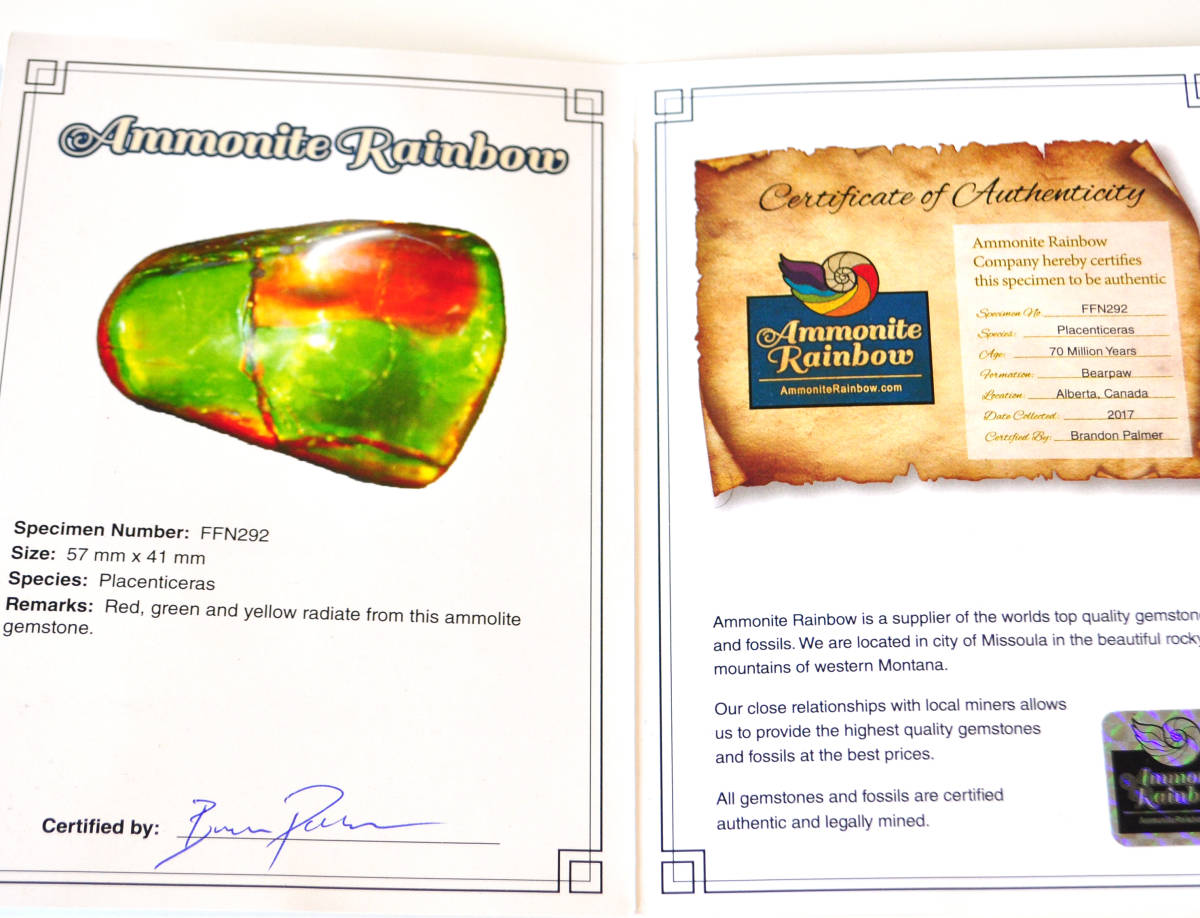 Ammonite Rainbow
Specimen Number: FFN292
Size: 57 mm x 41 mm
Species: Placenticeras
Remarks: Red, green and yellow radiate from this ammolite
gemstone.
Certified by:
Certificate of Authenticity
Ammonite
Rainbow
AmmoniteRainbow.com
Ammonite Rainbow
Company hereby certifies
this specimen to be authentic
Specimen No FFN292
Species: Placenticeras
Age: 70 Million Years
Formation: Bearpaw
Location: Alberta, Canada
Date Collected: 2017
Certified By: Brandon Palmer
Ammonite Rainbow is a supplier of the worlds top quality gemston
and fossils. We are located in city of Missoula in the beautiful rocky
mountains of western Montana.
Our close relationships with local miners allows
us to provide the highest quality gemstones
and fossils at the best prices.
All gemstones and fossils are certified
authentic and legally mined.
Ammoni
Rainb